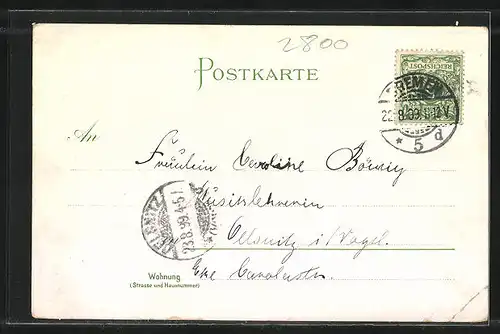 2800
POSTKARTE
REICHSPOST
BREMEN
22.8.99.11-12V.
* 5 d
An
Fräulein Caroline
Musiklehrerin
Oelsnitz i/Vogtl.
OELSNITZ
23.8.99.4-5N
Wohnung
(Strasse und Hausnummer)
Ecke